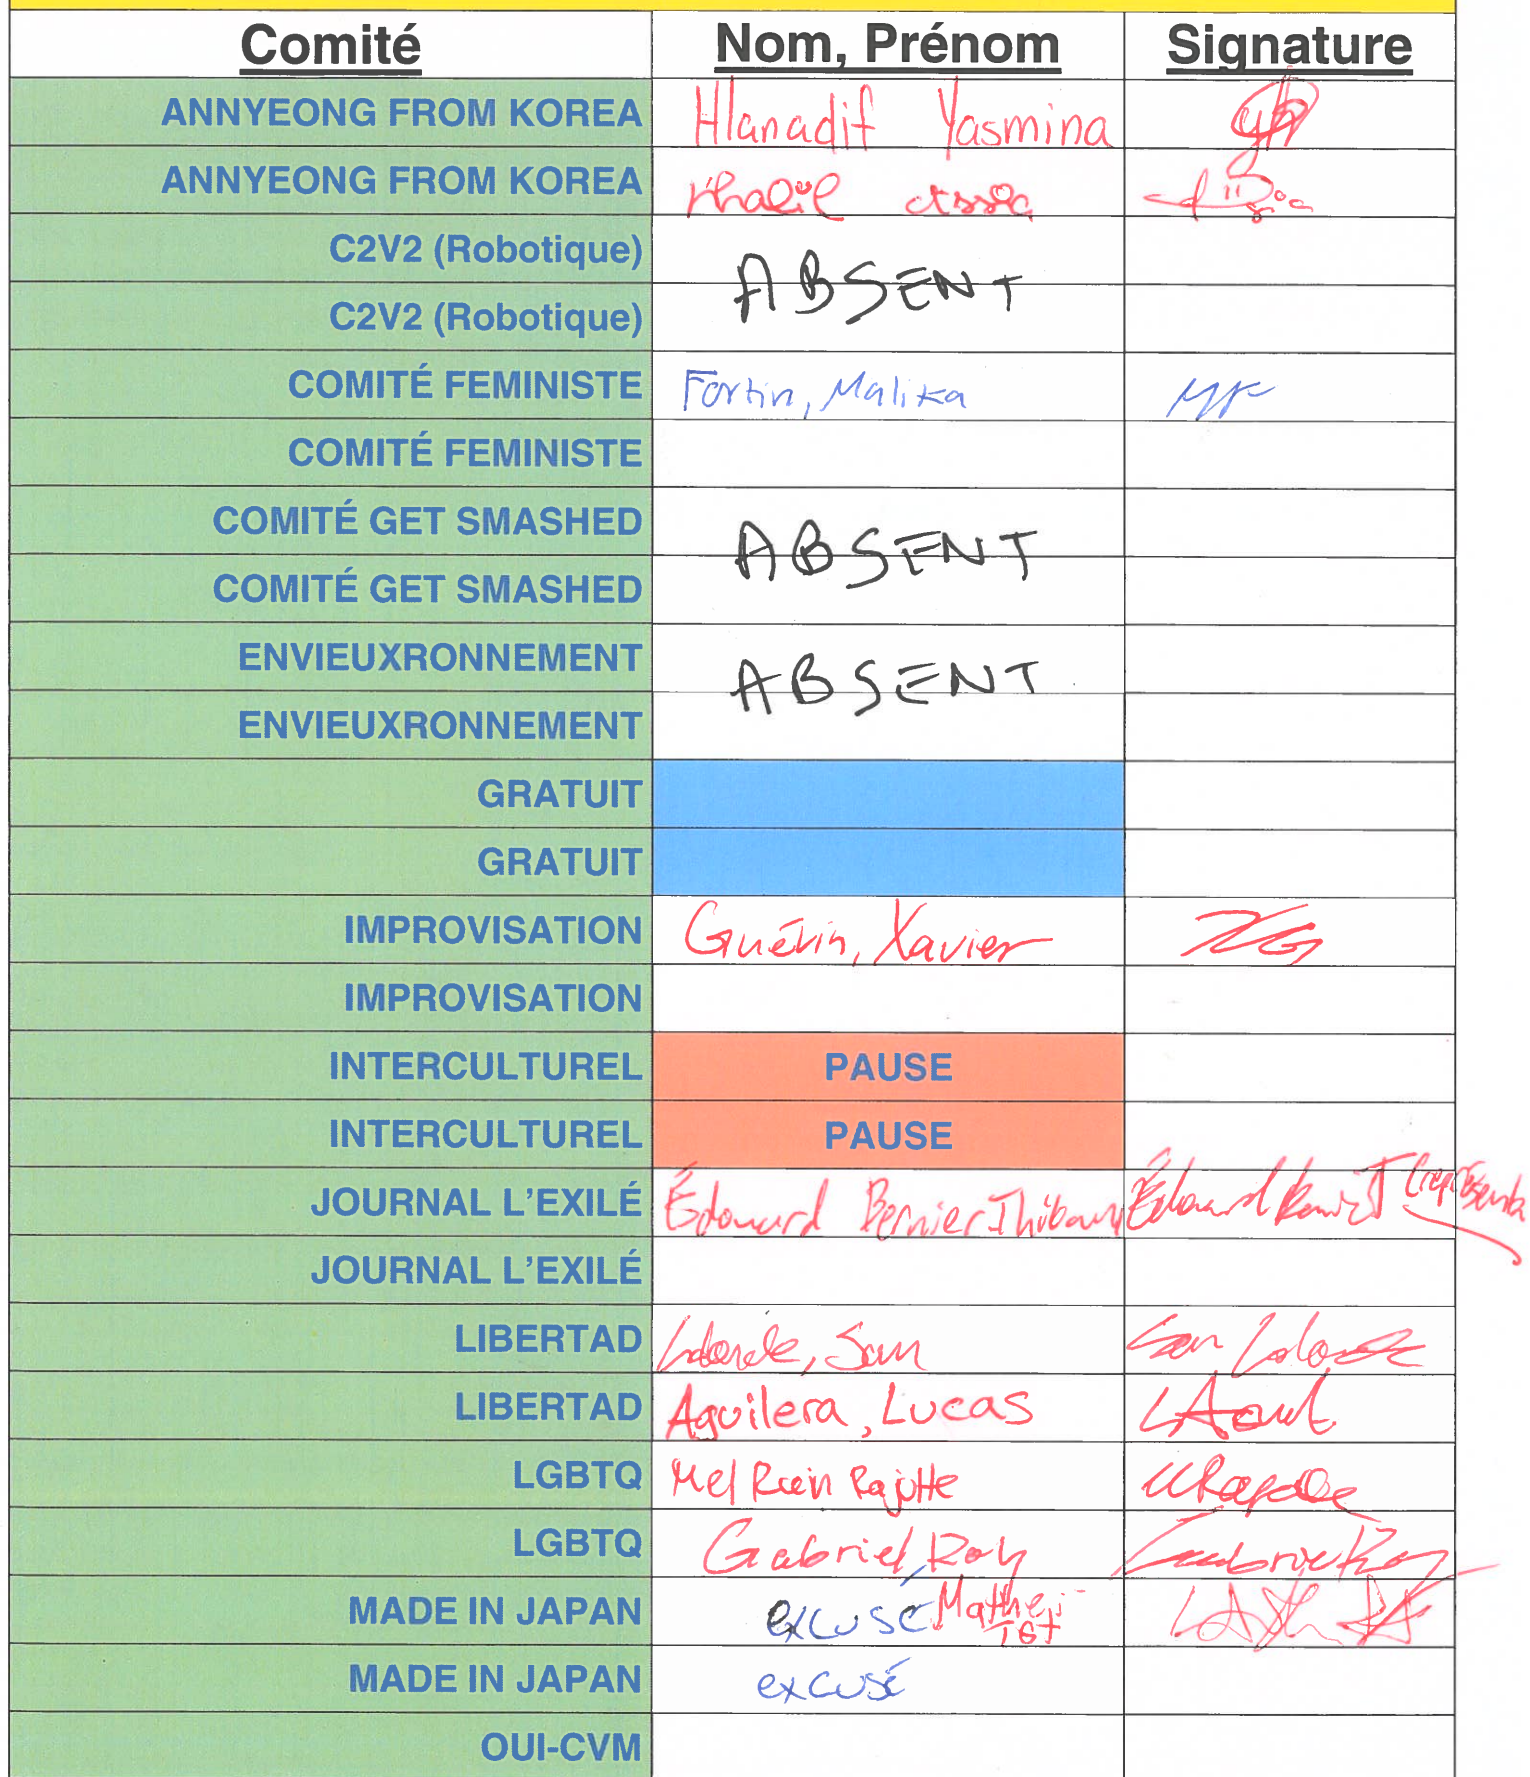 Comité Nom, Prénom Signature
ANNYEONG FROM KOREA Hlanadif Yasmina
ANNYEONG FROM KOREA Khalil Assia
C2V2 (Robotique) ABSENT
C2V2 (Robotique)
COMITÉ FEMINISTE Fortin, Malika MF
COMITÉ FEMINISTE
COMITÉ GET SMASHED ABSENT
COMITÉ GET SMASHED
ENVIEUXRONNEMENT ABSENT
ENVIEUXRONNEMENT
GRATUIT
GRATUIT
IMPROVISATION Guérin, Xavier XG
IMPROVISATION
INTERCULTUREL PAUSE
INTERCULTUREL PAUSE
JOURNAL L'EXILÉ Édouard Bernier Thibault Édouard
JOURNAL L'EXILÉ
LIBERTAD Sam Sam
LIBERTAD Aguilera, Lucas
LGBTQ Mel Rajotte
LGBTQ Gabriel, Roy Gabriel Roy
MADE IN JAPAN excusé
MADE IN JAPAN excusé
OUI-CVM